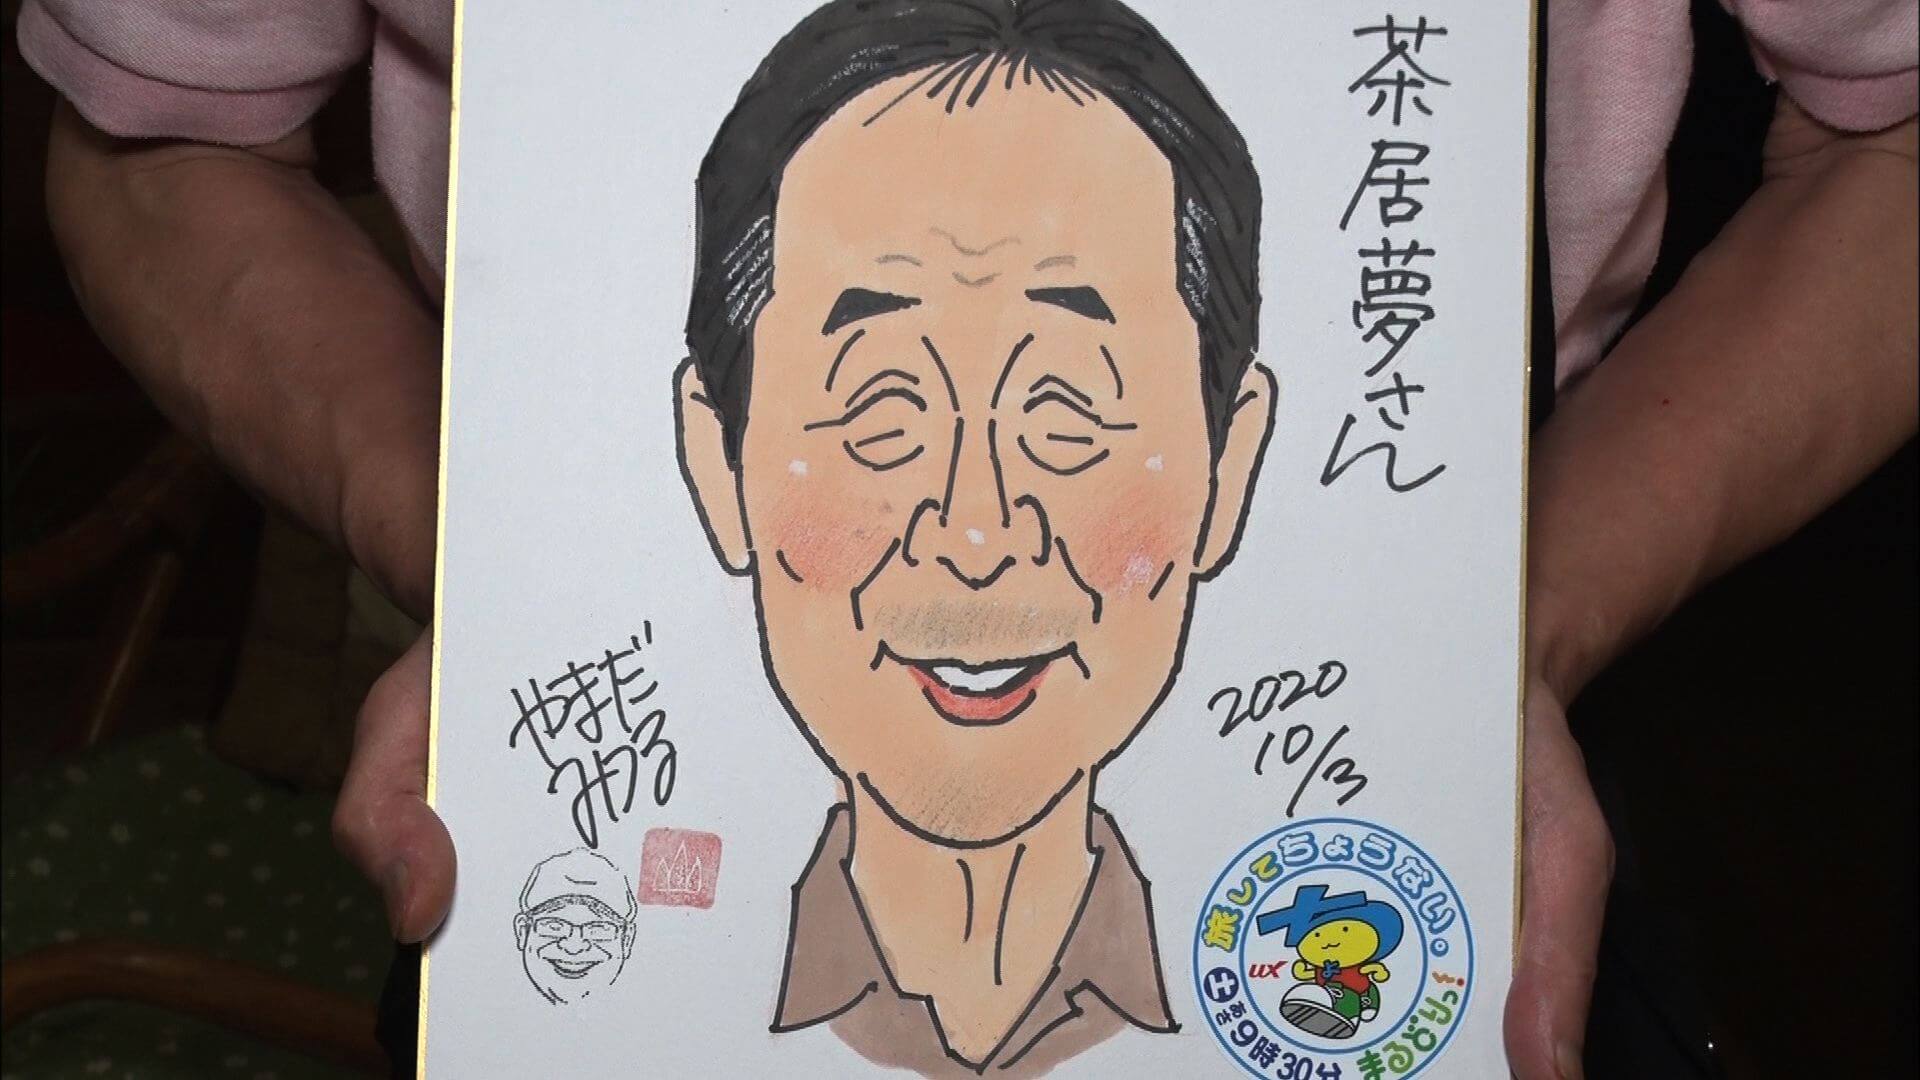 茶居夢さん
やまだ
みつる
2020
10/3
旅してちょうない。
UX
土あさ9時30分
まるどりっ!